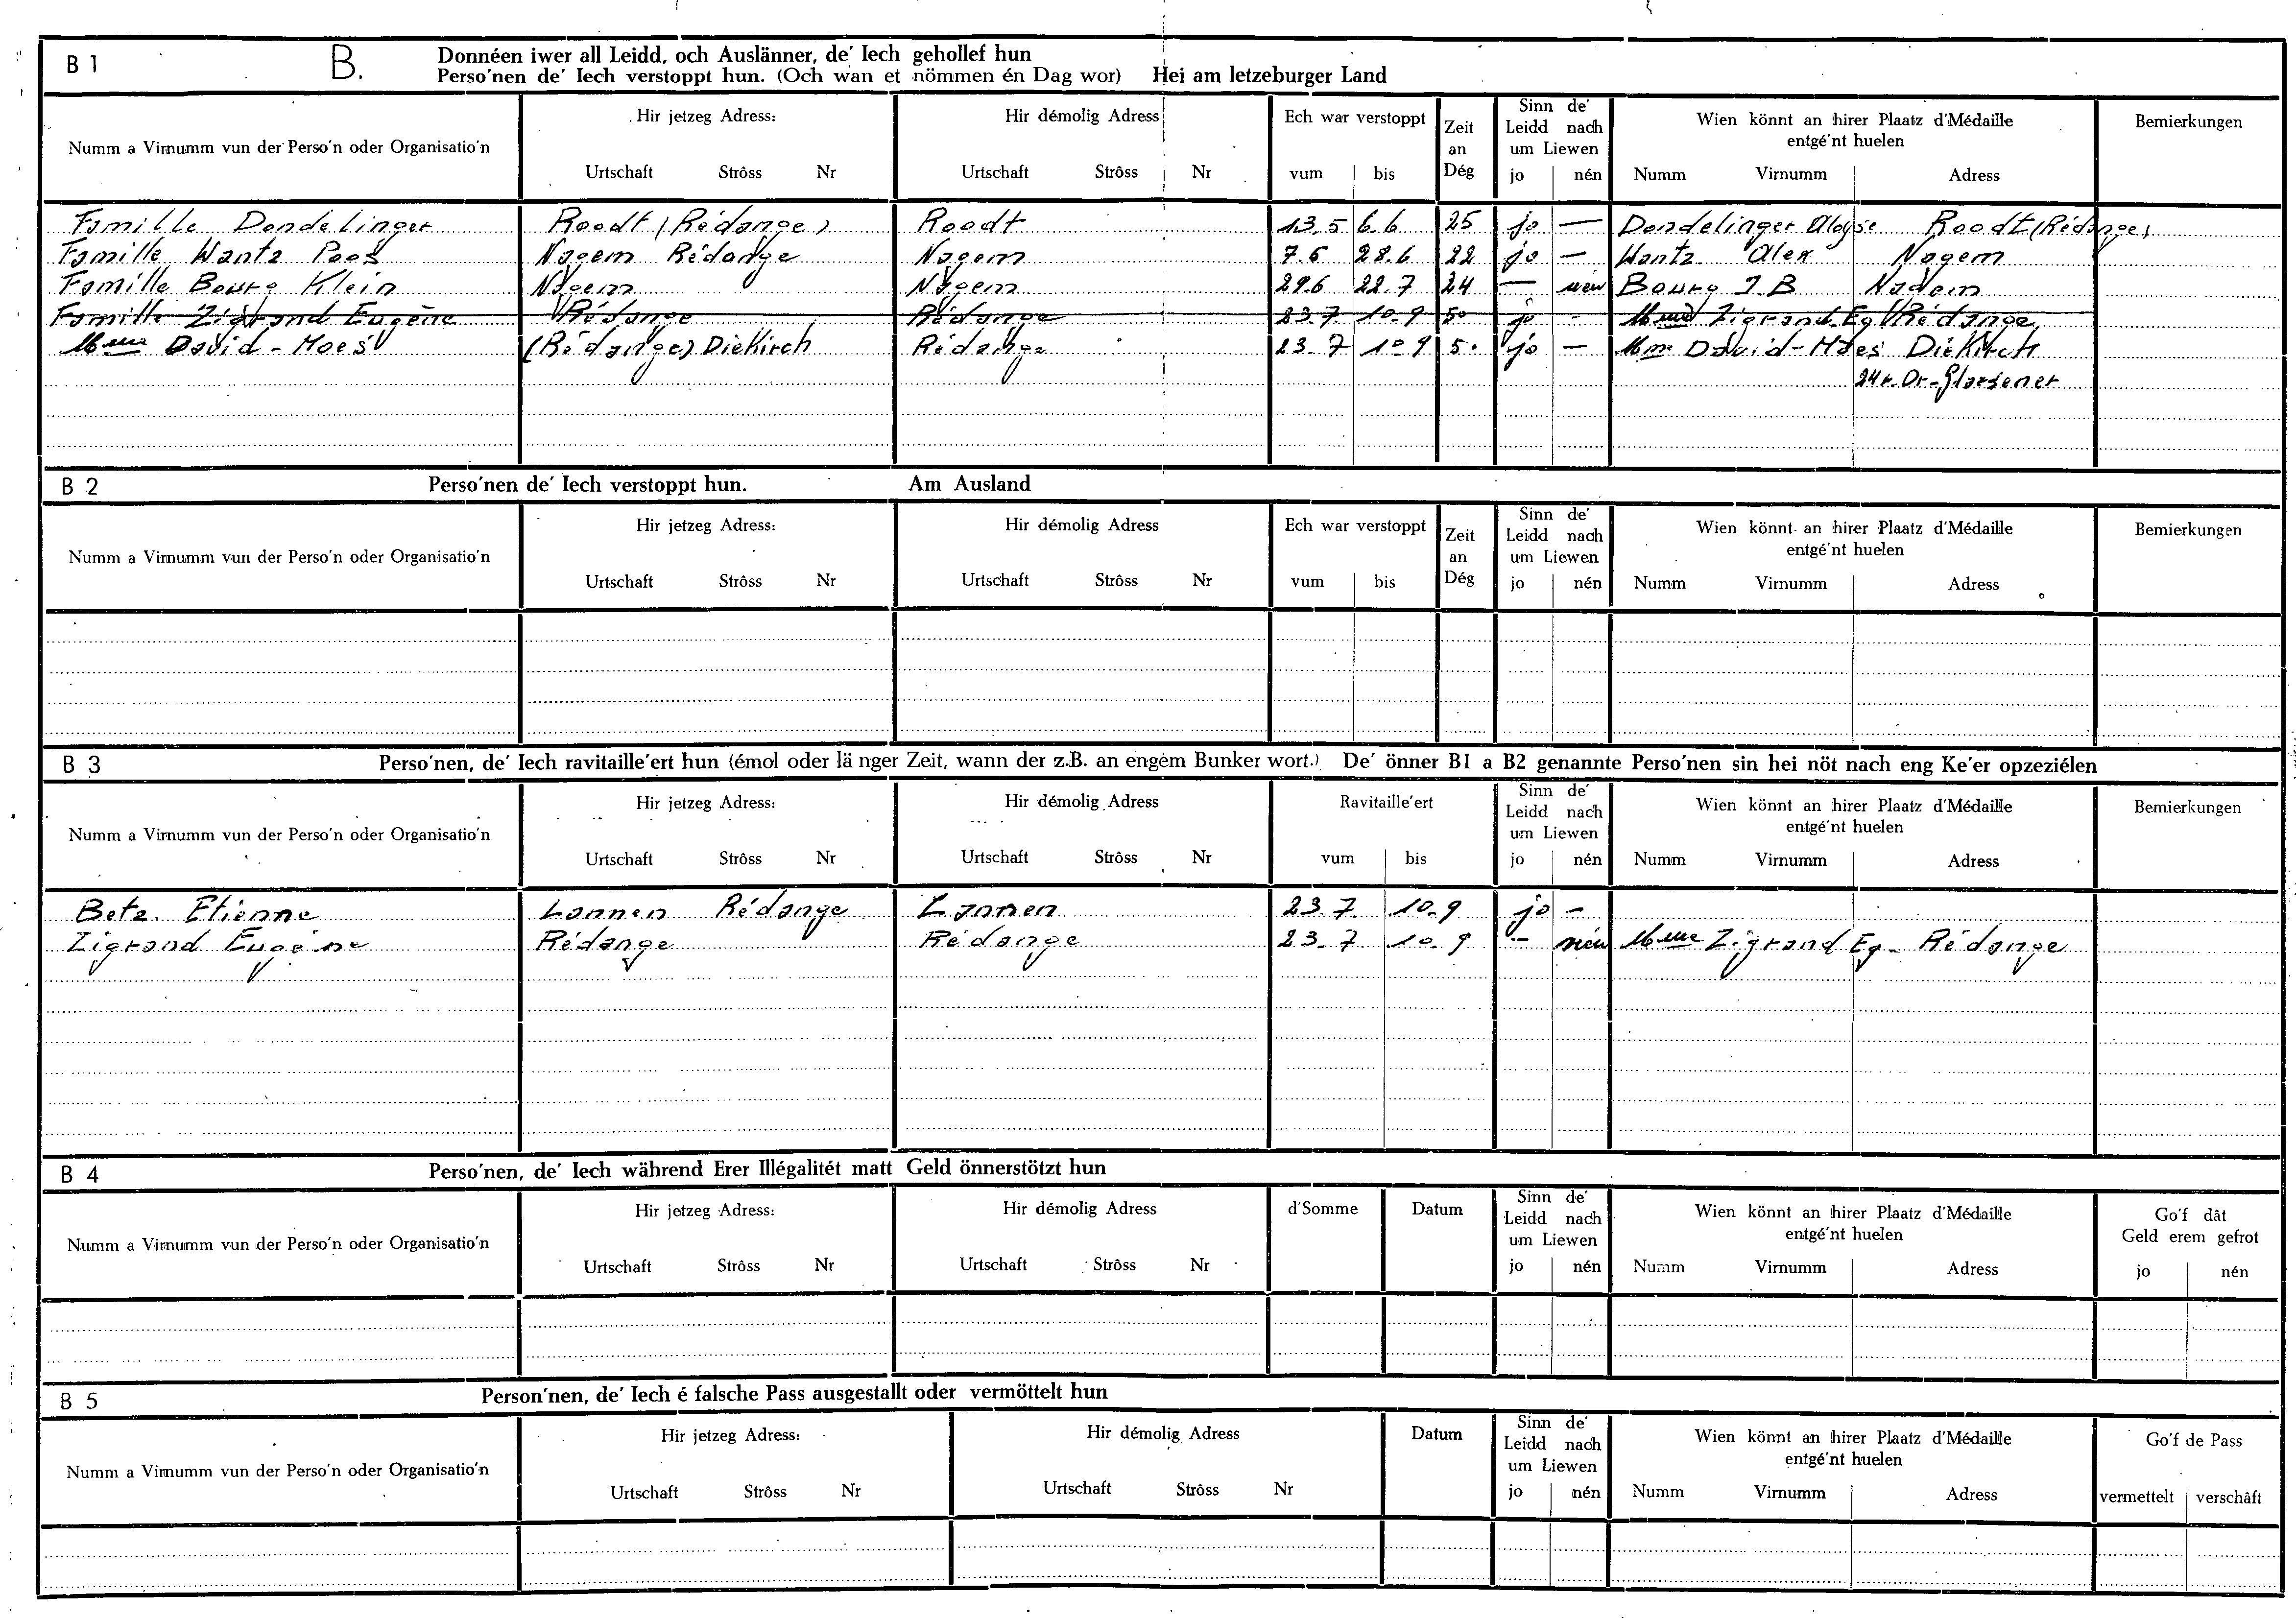 B 1 B. Donnéen iwer all Leidd, och Auslänner, de' Iech gehollef hun
Perso'nen de' Iech verstoppt hun. (Och wan et nömmen én Dag wor) Hei am letzeburger Land
Numm a Virnumm vun der Perso'n oder Organisatio'n
Hir jetzeg Adress:
Urtschaft Strôss Nr
Hir démolig Adress
Urtschaft Strôss Nr
Ech war verstoppt
vum bis
Zeit
an
Dég
Sinn de'
Leidd nach
um Liewen
jo nén
Wien könnt an hirer Plaatz d'Médaille
entgé'nt huelen
Numm Virnumm Adress
Bemierkungen
Famille Dondelinger Roodt (Rédange) Roodt 13.5 6.6 25 jo — Dondelinger Aloyse Roodt (Rédange)
Famille Wantz Poos Nagem Rédange Nagem 7.6 28.6 22 jo — Wantz Alex Nagem
Famille Bourg Klein Nagem Nagem 29.6 22.7 24 — nén Bourg J.B Nagem
Famille Zigrand Eugène Rédange Rédange 23.7 10.9 50 jo - Mme Zigrand Eg Rédange
Mme David-Moes (Rédange) Diekirch Rédange 23.7 10.9 50 jo — Mme David-Moes Diekirch
24 r. Dr-Glaesener
B 2 Perso'nen de' Iech verstoppt hun. Am Ausland
Numm a Virnumm vun der Perso'n oder Organisatio'n
Hir jetzeg Adress:
Urtschaft Strôss Nr
Hir démolig Adress
Urtschaft Strôss Nr
Ech war verstoppt
vum bis
Zeit
an
Dég
Sinn de'
Leidd nach
um Liewen
jo nén
Wien könnt an hirer Plaatz d'Médaille
entgé'nt huelen
Numm Virnumm Adress
Bemierkungen
B 3 Perso'nen, de' Iech ravitaille'ert hun (émol oder länger Zeit, wann der z.B. an engem Bunker wort.) De' önner B1 a B2 genannte Perso'nen sin hei nöt nach eng Ke'er opzeziélen
Numm a Virnumm vun der Perso'n oder Organisatio'n
Hir jetzeg Adress:
Urtschaft Strôss Nr
Hir démolig Adress
Urtschaft Strôss Nr
Ravitaille'ert
vum bis
Sinn de'
Leidd nach
um Liewen
jo nén
Wien könnt an hirer Plaatz d'Médaille
entgé'nt huelen
Numm Virnumm Adress
Bemierkungen
Betz. Etienne Lannen Rédange Lannen 23.7. 10.9 jo -
Zigrand Eugène Rédange Rédange 23.7 10.9 - nén Mme Zigrand Eg. Rédange
B 4 Perso'nen, de' Iech während Erer Illégalitét matt Geld önnerstötzt hun
Numm a Virnumm vun der Perso'n oder Organisatio'n
Hir jetzeg Adress:
Urtschaft Strôss Nr
Hir démolig Adress
Urtschaft Strôss Nr
d'Somme
Datum
Sinn de'
Leidd nach
um Liewen
jo nén
Wien könnt an hirer Plaatz d'Médaille
entgé'nt huelen
Numm Virnumm Adress
Go'f dât
Geld erem gefrot
jo nén
B 5 Person'nen, de' Iech é falsche Pass ausgestallt oder vermöttelt hun
Numm a Virnumm vun der Perso'n oder Organisatio'n
Hir jetzeg Adress:
Urtschaft Strôss Nr
Hir démolig Adress
Urtschaft Strôss Nr
Datum
Sinn de'
Leidd nach
um Liewen
jo nén
Wien könnt an hirer Plaatz d'Médaille
entgé'nt huelen
Numm Virnumm Adress
Go'f de Pass
vermettelt verschâft